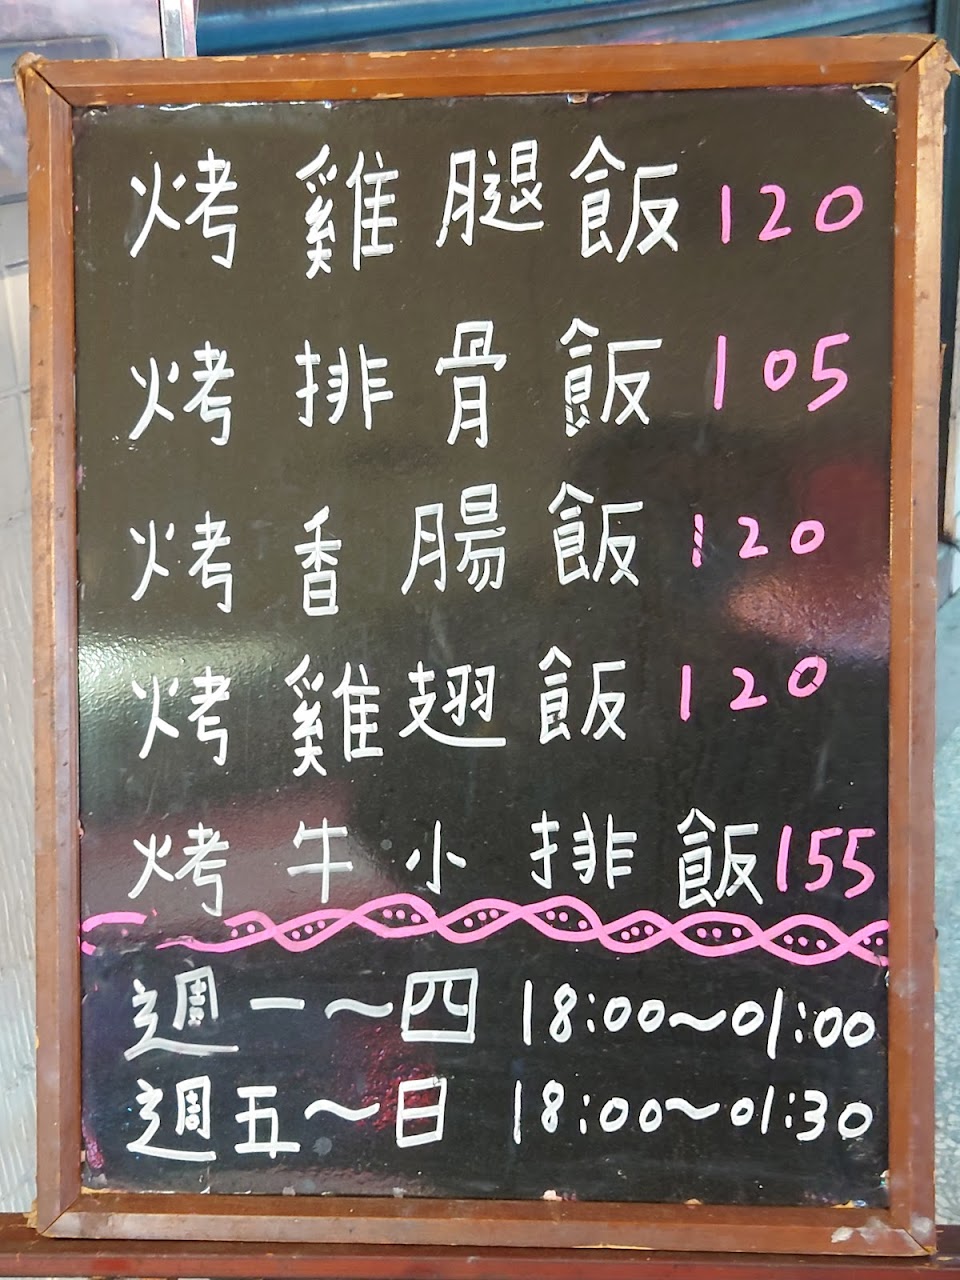 烤雞腿飯 120
烤排骨飯 105
烤香腸飯 120
烤雞翅飯 120
烤牛小排飯 155
週一~四 18:00~01:00
週五~日 18:00~01:30